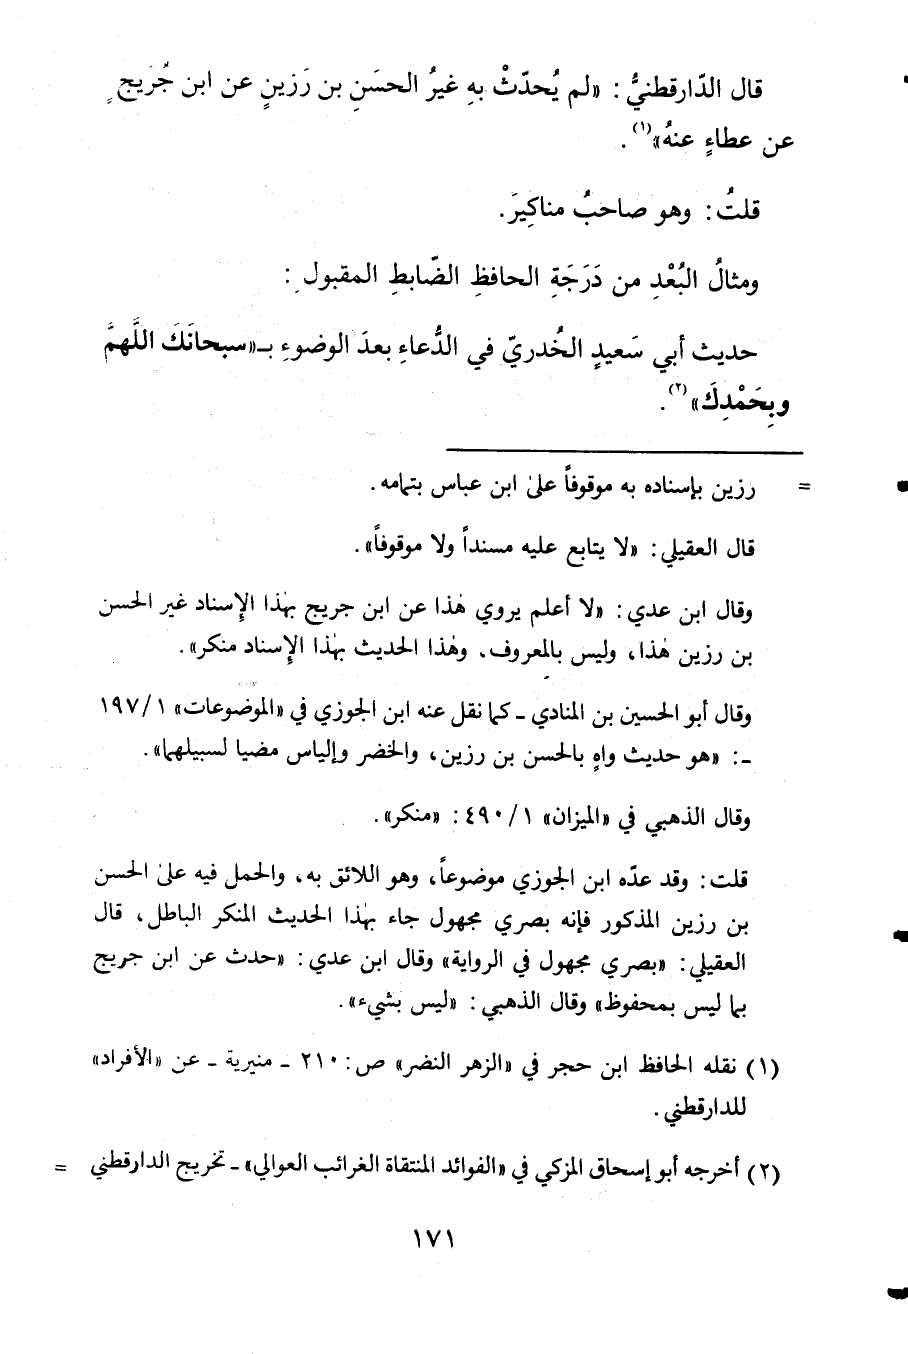 قال الدّارقطنيُّ: «لم يُحدّثْ بهِ غيرُ الحسَنِ بن رَزينٍ عن ابن جُرَيجٍ
عن عطاءٍ عنهُ»(١).
قلتُ: وهو صاحبُ مناكِيرَ.
ومثالُ البُعْدِ من دَرَجَةِ الحافظِ الضّابطِ المقبولِ:
حديث أبي سَعيدٍ الخُدريّ في الدُّعاءِ بعدَ الوضوءِ بـ«سبحانَكَ اللَّهمَّ
وبِحَمْدِكَ»(٢).
= رزين بإسناده به موقوفاً على ابن عباس بتمامه.
قال العقيلي: «لا يتابع عليه مسنداً ولا موقوفاً».
وقال ابن عدي: «لا أعلم يروي هٰذا عن ابن جريج بهٰذا الإسناد غير الحسن
بن رزين هٰذا، وليس بالمعروف. وهٰذا الحديث بهٰذا الإسناد منكر».
وقال أبو الحسين بن المنادي ـ كما نقل عنه ابن الجوزي في «الموضوعات» ١/١٩٧
ـ: «هو حديث واهٍ بالحسن بن رزين، والخضر وإلياس مضيا لسبيلهما».
وقال الذهبي في «الميزان» ١/٤٩٠: «منكر».
قلت: وقد عدّه ابن الجوزي موضوعاً، وهو اللائق به، والحمل فيه على الحسن
بن رزين المذكور فإنه بصري مجهول جاء بهٰذا الحديث المنكر الباطل، قال
العقيلي: «بصري مجهول في الرواية» وقال ابن عدي: «حدث عن ابن جريج
بما ليس بمحفوظ» وقال الذهبي: «ليس بشيء».
(١) نقله الحافظ ابن حجر في «الزهر النضر» ص: ٢١٠ ـ منيرية ـ عن «الأفراد»
للدارقطني.
(٢) أخرجه أبو إسحاق المزكي في «الفوائد المنتقاة الغرائب العوالي» ـ تخريج الدارقطني =
١٧١